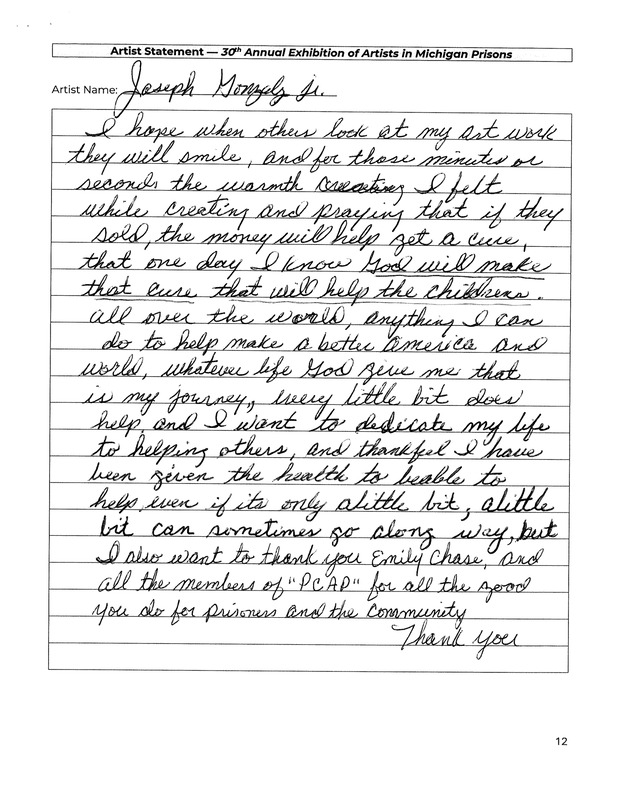 Artist Statement — 30th Annual Exhibition of Artists in Michigan Prisons
Artist Name: Joseph Gonzalz Jr.
I hope when others look at my art work
they will smile, and for those minutes or
seconds the warmth creating I felt
while creating and praying that if they
sold, the money will help get a cure,
that one day I know God will make
that cure that will help the childrens.
all over the world, anything I can
do to help make a better america and
world, whatever life God give me that
is my journey, every little bit does
help and I want to dedicate my life
to helping others, and thankful I have
been given the health to beable to
help even if its only alittle bit, alittle
bit can sometimes go along way, but
I also want to thank you Emily Chase, and
all the members of "PCAP" for all the good
you do for prisoners and the community
Thank you
12